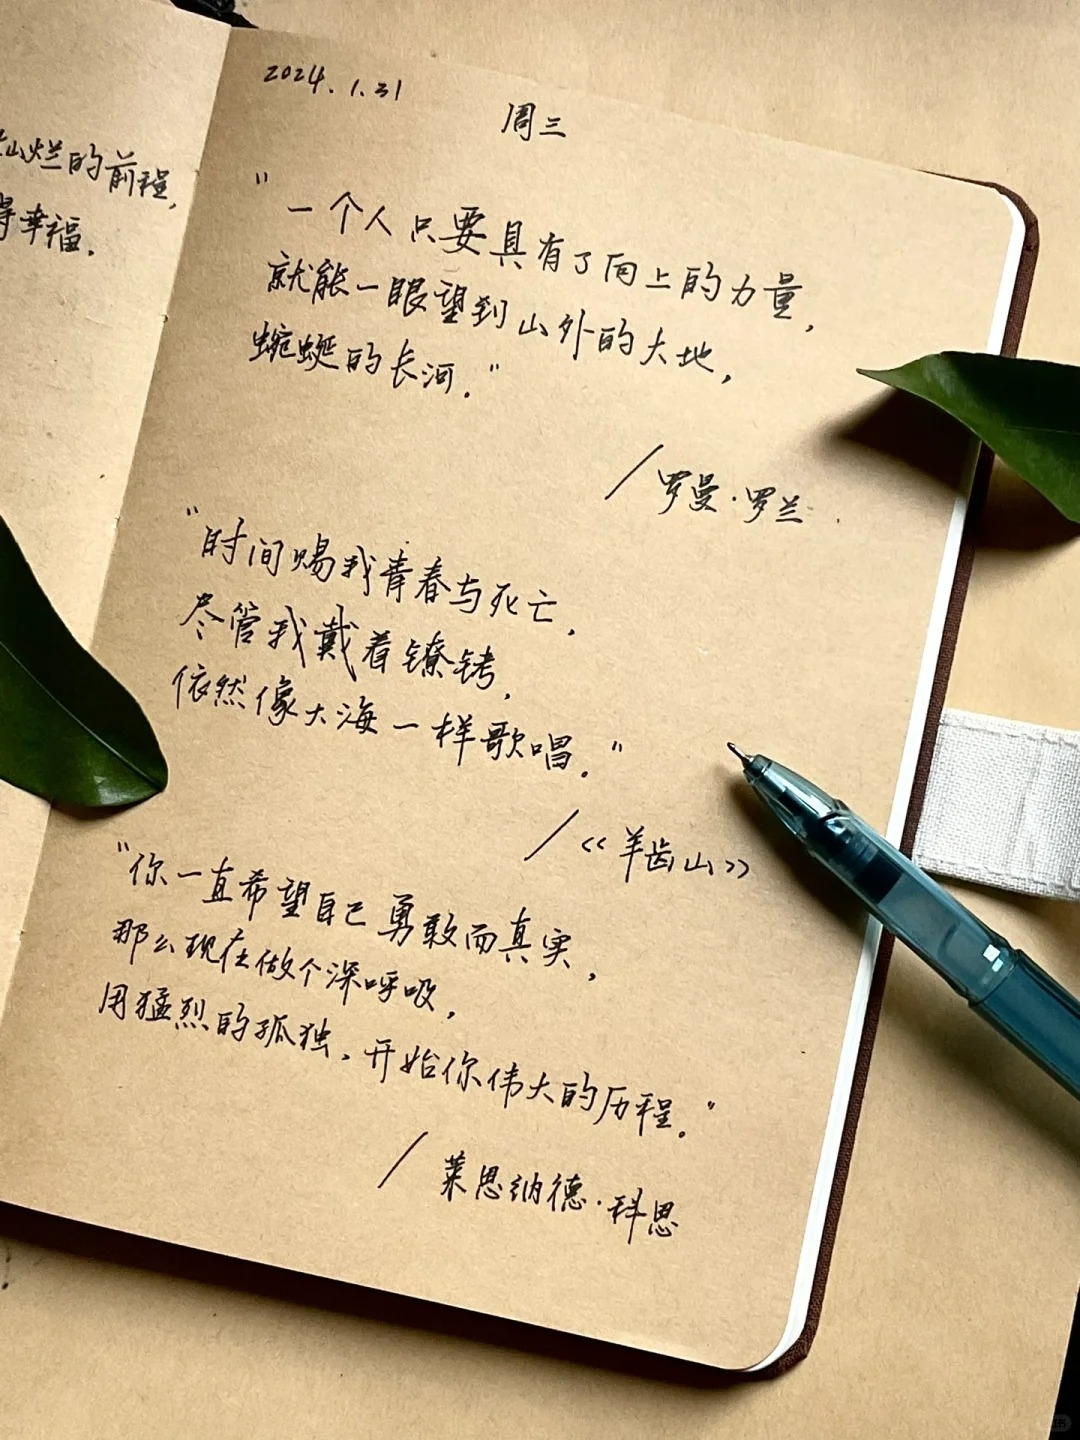 灿烂的前程,
得幸福.
2024.1.31
周三
"一个人只要具有了向上的力量,
就能一眼望到山外的大地,
蜿蜒的长河."
/罗曼·罗兰
"时间赐我青春与死亡,
尽管我戴着镣铐,
依然像大海一样歌唱."
/《羊齿山》
"你一直希望自己勇敢而真实,
那么现在做个深呼吸,
用猛烈的孤独,开始你伟大的历程."
/莱恩纳德·科恩